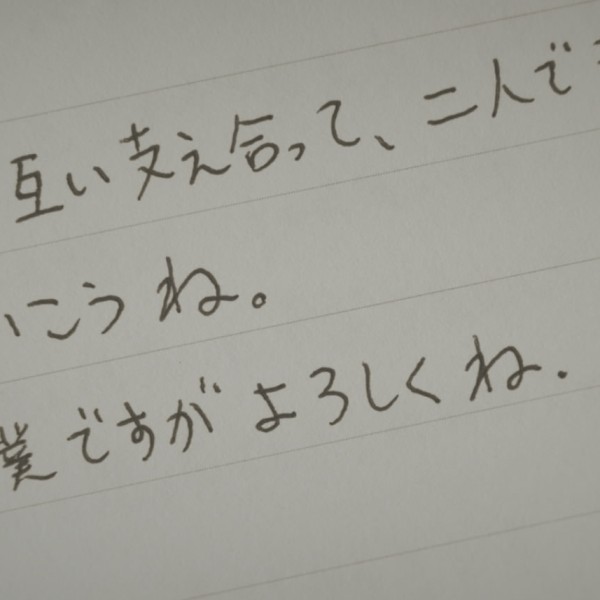 互い支え合って、二人で
いこうね。
僕ですがよろしくね.